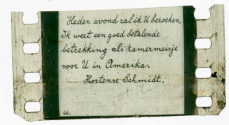 Heden avond zal ik U bezoeken.
Ik weet een goed betalende
betrekking als kamermeisje
voor U in Amerika.
Hortense Schmidt.